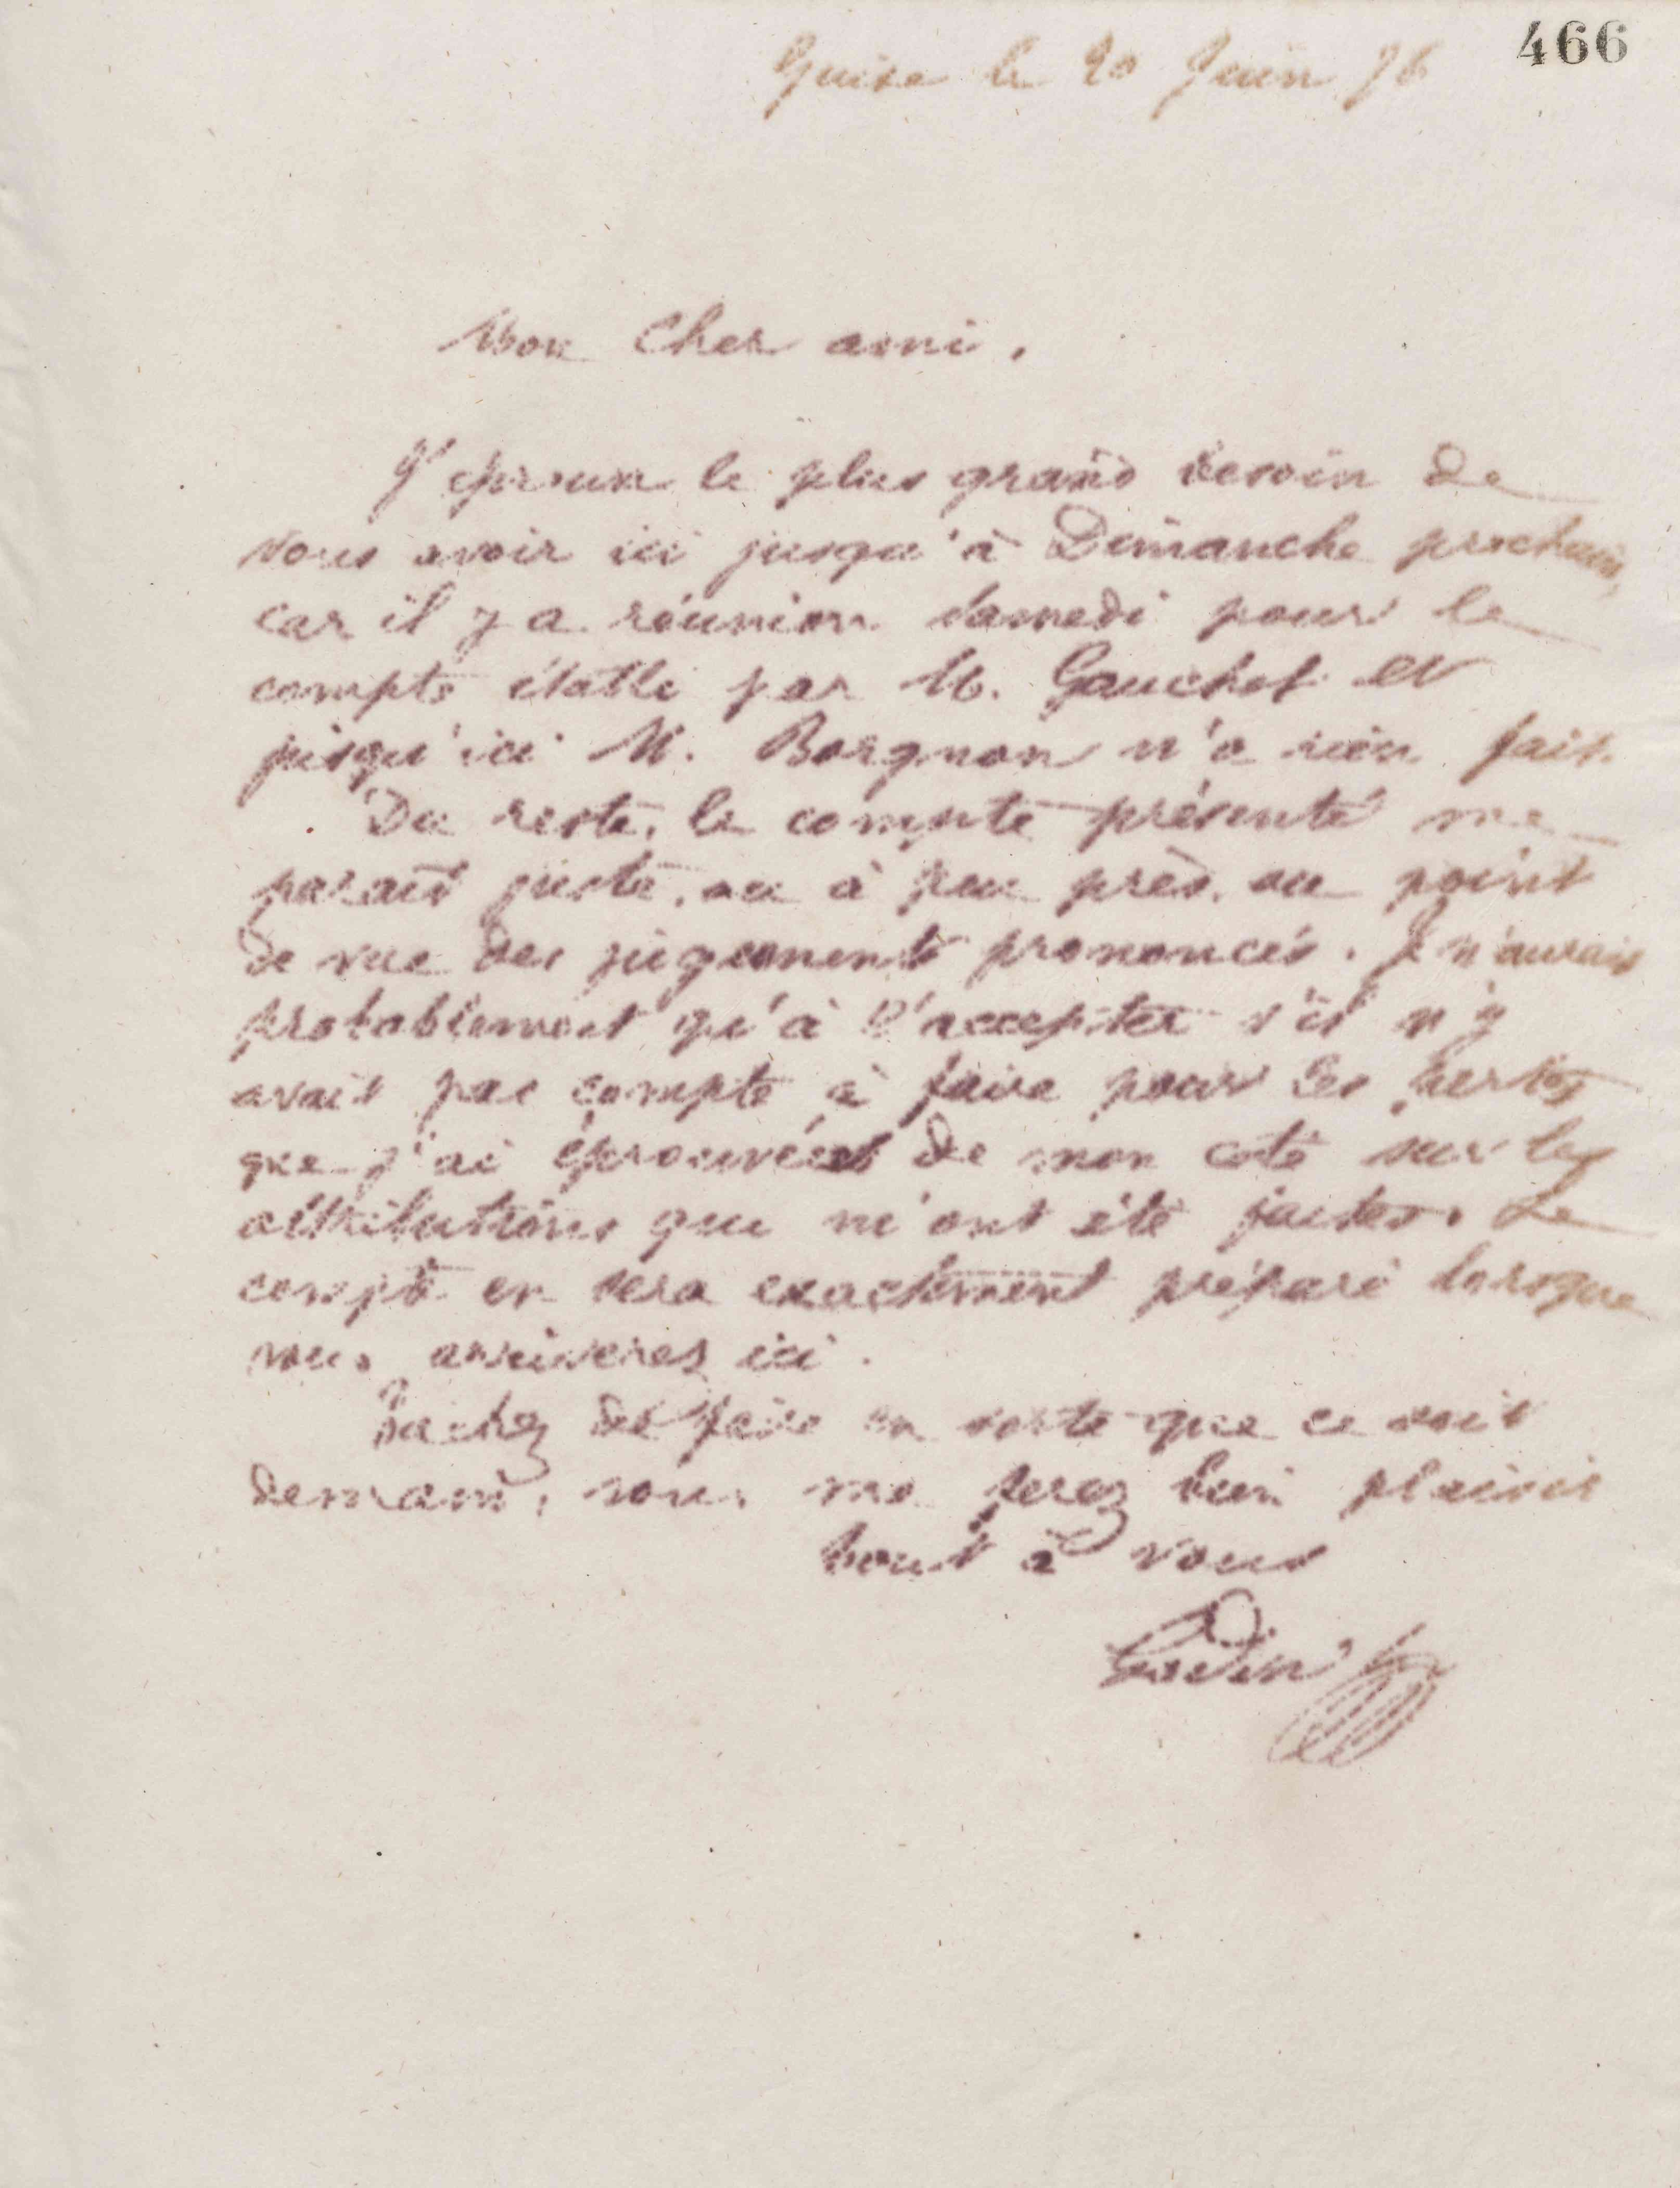 466
Guise le 20 Juin 76
Mon Cher ami,
J'éprouve le plus grand besoin de
vous avoir ici jusqu'à Dimanche prochain,
car il y a réunion samedi pour le
compte établi par M. Gauchet et
jusqu'ici M. Borgnon n'a rien fait.
Du reste, le compte présenté me
parait juste, ou à peu près, au point
de vue des jugements prononcés. Je n'aurais
probablement qu'à l'accepter s'il n'y
avait pas compte à faire pour les pertes
que j'ai éprouvées de mon coté sur les
attributions qui m'ont été faites. Le
compte en sera exactement préparé lorsque
vous arriverez ici.
Tachez de faire en sorte que ce soit
demain, vous me ferez bien plaisir
tout à vous
Godin